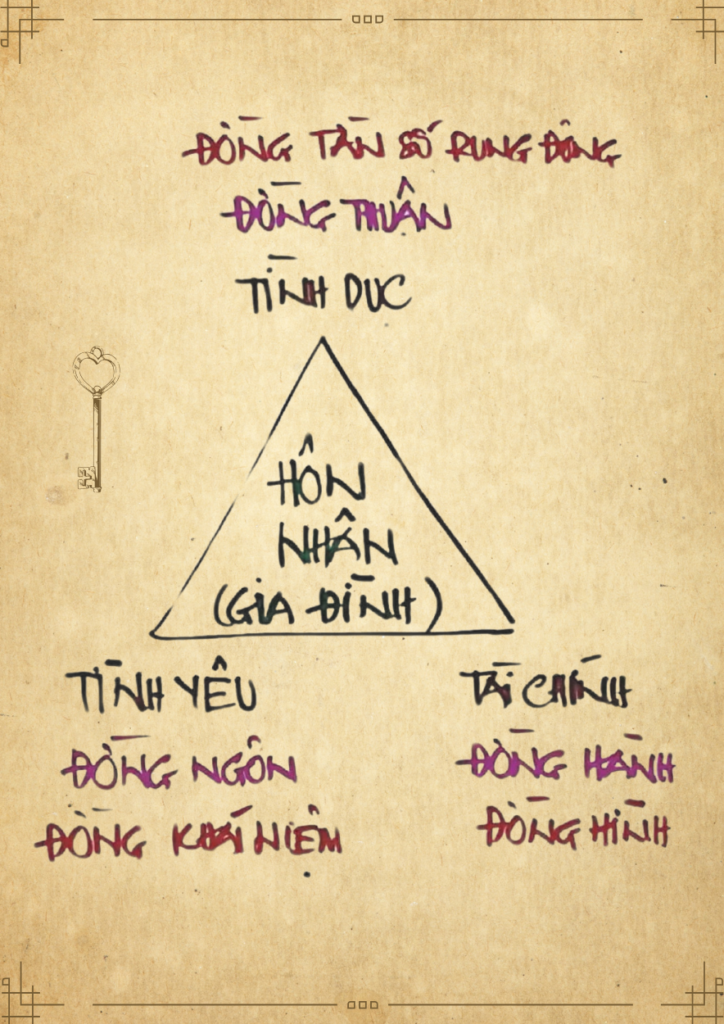 ĐỒNG TẦN SỐ RUNG ĐỘNG
ĐỒNG THUẬN
TÌNH DỤC
HÔN
NHÂN
(GIA ĐÌNH)
TÌNH YÊU
ĐỒNG NGÔN
ĐỒNG KHÁI NIỆM
TÀI CHÍNH
ĐỒNG HÀNH
ĐỒNG HÌNH